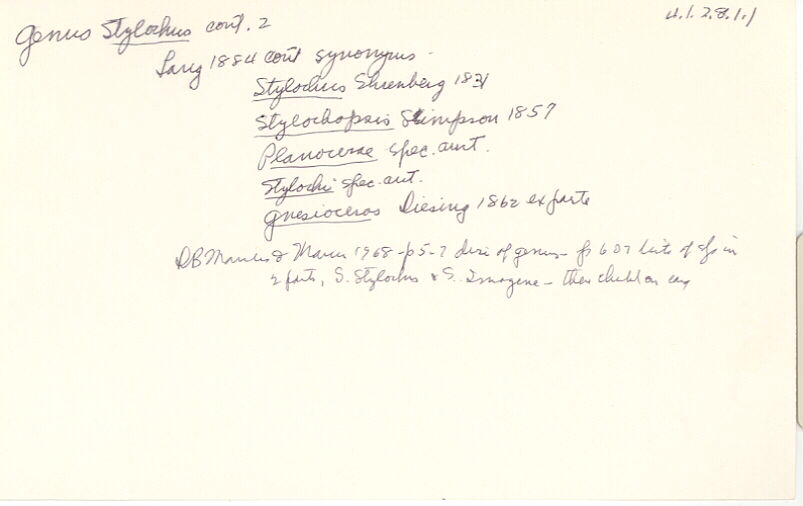 4.1.28.1.1
Genus Stylochus cont. 2
Lang 1884 cont synonyms -
Stylochus Ehrenberg 1831
Stylochopsis Stimpson 1857
Planocerae spec. aut.
Stylochi spec. aut.
Gnesioceros Diesing 1862 ex parte
DB Marcus & Marcus 1968 - p5-7 disc of genus - p 6 & 7 lists of sp in
2 parts, S. Stylochus & S. Imogene - then